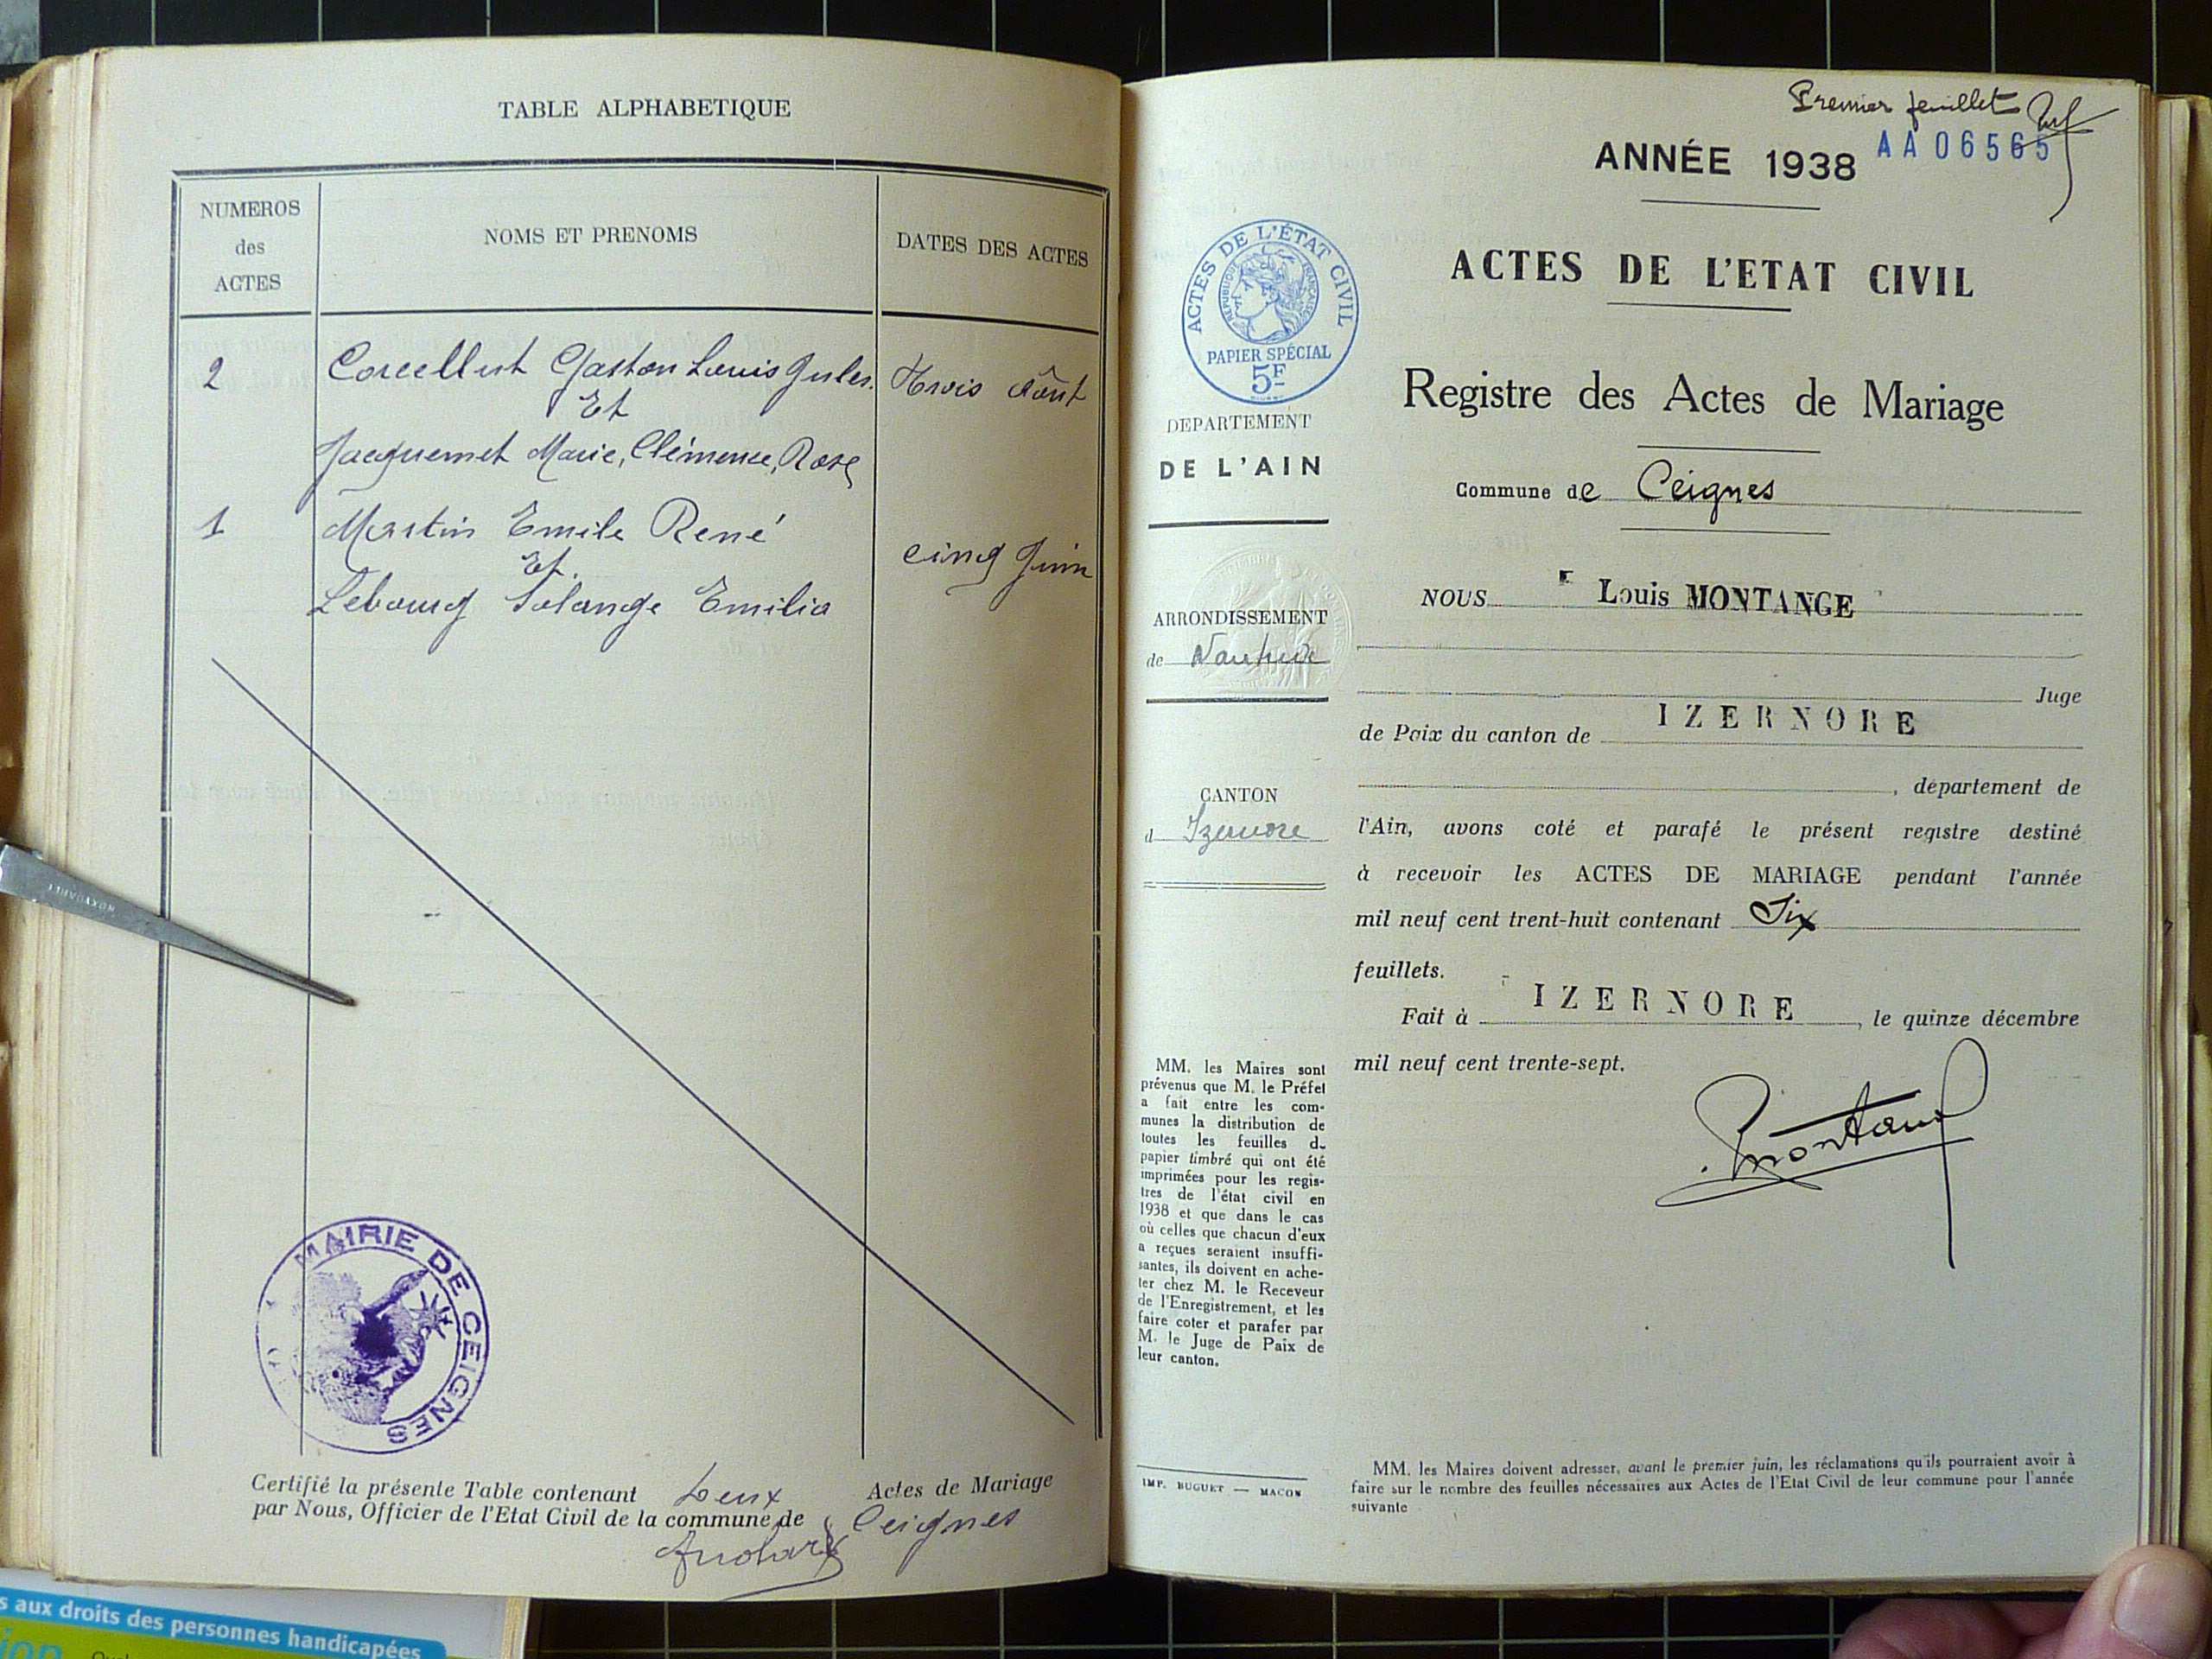 TABLE ALPHABETIQUE
NUMEROS
des
ACTES
NOMS ET PRENOMS
DATES DES ACTES
2
Corcellut Gaston Louis Jules.
Trois Août
Et
Jacquemet Marie, Clémence, Rose
1
Martin Emile René
Et.
cinq Juin
Lebourg Solange Emilia
MAIRIE DE CEIGNES
Certifié la présente Table contenant Deux Actes de Mariage
par Nous, Officier de l'Etat Civil de la commune de Ceignes
s aux droits des personnes handicapées
Premier feuillet
ANNÉE 1938
AA06565
ACTES DE L'ETAT CIVIL
ACTES DE L'ÉTAT CIVIL
REPUBLIQUE FRANÇAISE
PAPIER SPÉCIAL
5F
DEPARTEMENT
DE L'AIN
ARRONDISSEMENT
de Nantua
CANTON
d Izernore
MM. les Maires sont
prévenus que M. le Préfet
a fait entre les com-
munes la distribution de
toutes les feuilles de
papier timbré qui ont été
imprimées pour les regis-
tres de l'état civil en
1938 et que dans le cas
où celles que chacun d'eux
a reçues seraient insuffi-
santes, ils doivent en ache-
ter chez M. le Receveur
de l'Enregistrement, et les
faire coter et parafer par
M. le Juge de Paix de
leur canton.
IMP. BUGUET — MACON
Registre des Actes de Mariage
Commune de Ceignes
NOUS Louis MONTANGE
Juge
de Paix du canton de IZERNORE
, département de
l'Ain, avons coté et parafé le présent registre destiné
à recevoir les ACTES DE MARIAGE pendant l'année
mil neuf cent trent-huit contenant Six
feuillets.
Fait à IZERNORE, le quinze décembre
mil neuf cent trente-sept.
MM. les Maires doivent adresser, avant le premier juin, les réclamations qu'ils pourraient avoir à
faire sur le nombre des feuilles nécessaires aux Actes de l'Etat Civil de leur commune pour l'année
suivante